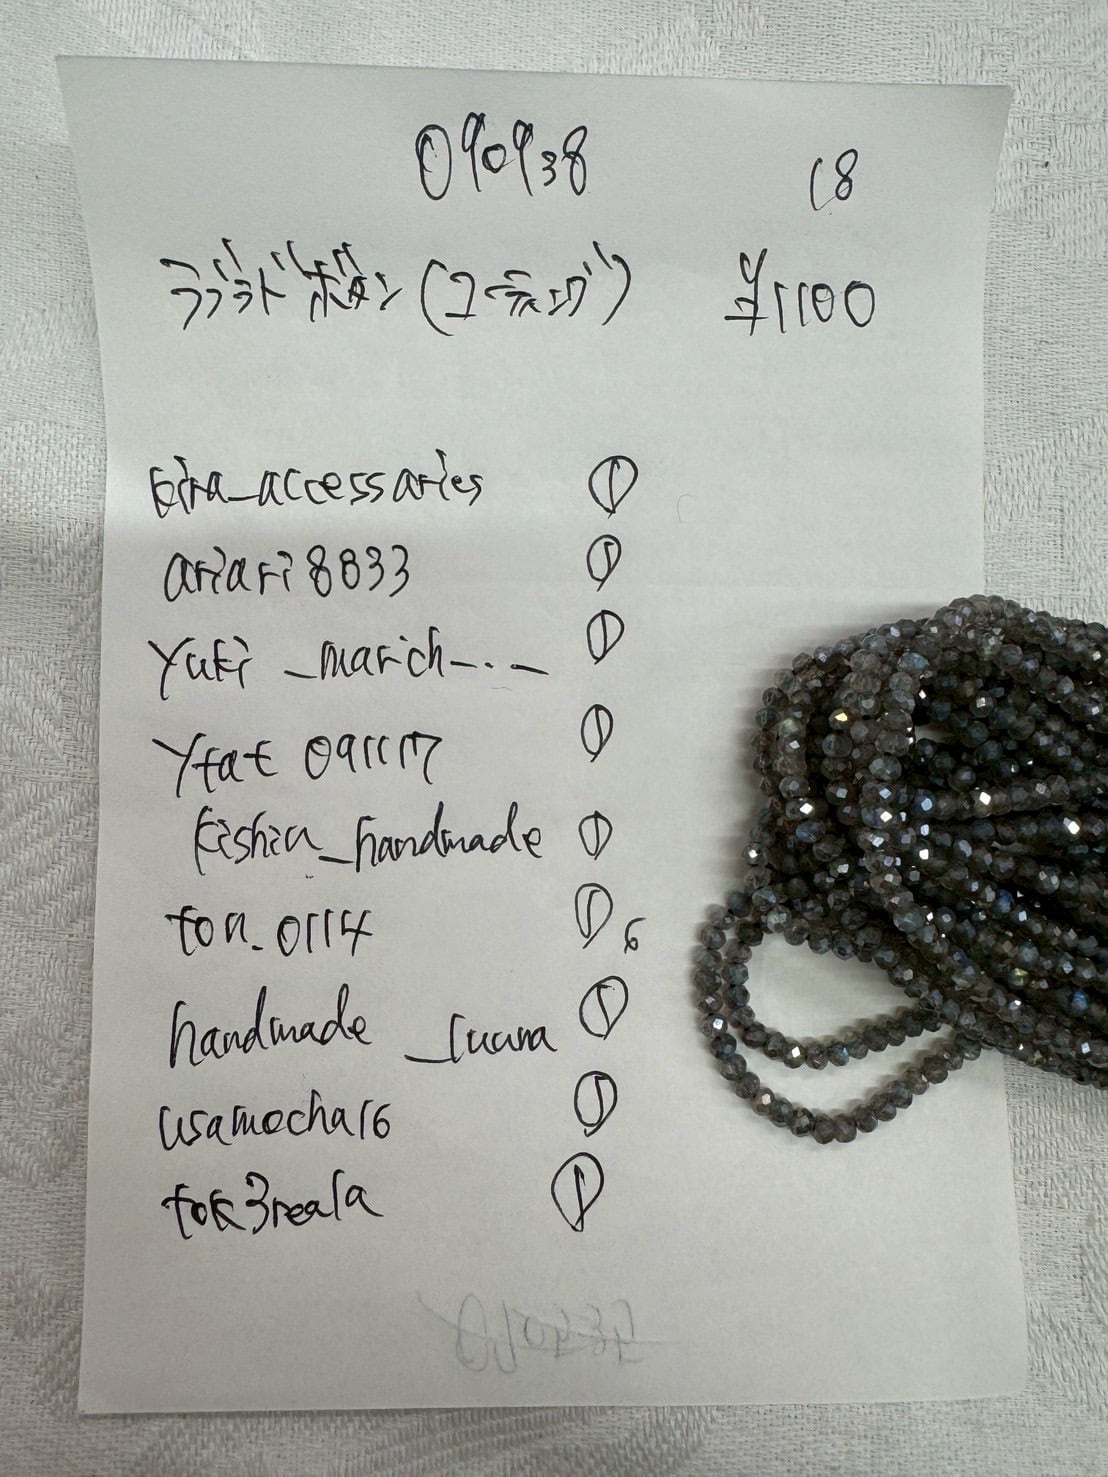 090938 18
ラブラドボタン(コーティング) ¥1100
kira_accessaries ①
ariari8833 ①
Yuki _marich--._ ①
Ytat 091117 ①
kishin_handmade ①
ton_0114 ① 6
handmade _luana ①
usamocha16 ①
tok3reala ①